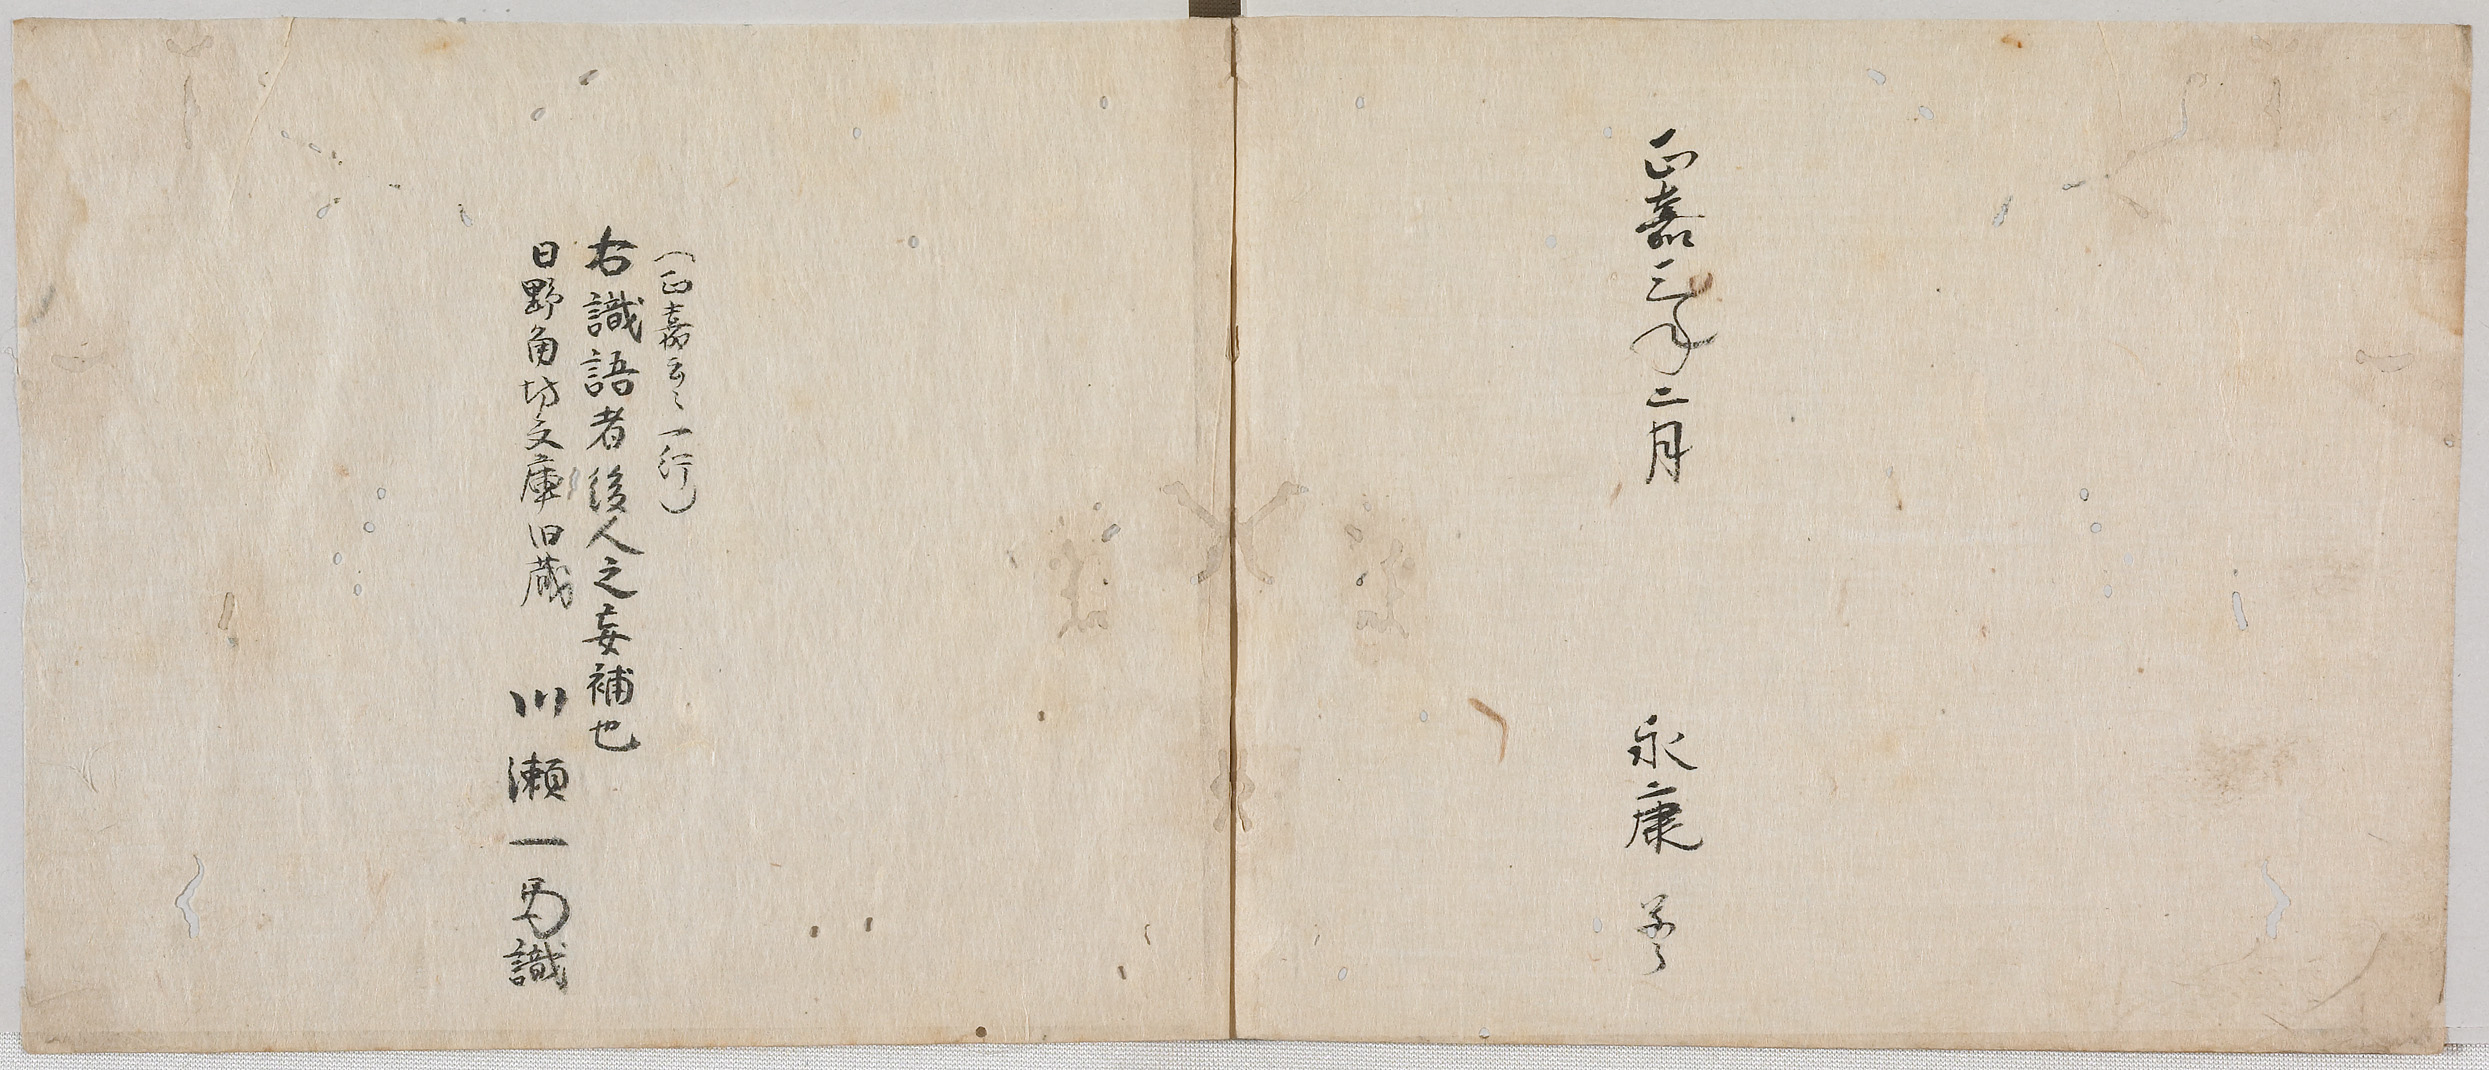 正嘉三年二月 永康
(正嘉云々一行)
右識語者後人之妄補也
日野角坊文庫旧蔵 川瀬一馬識